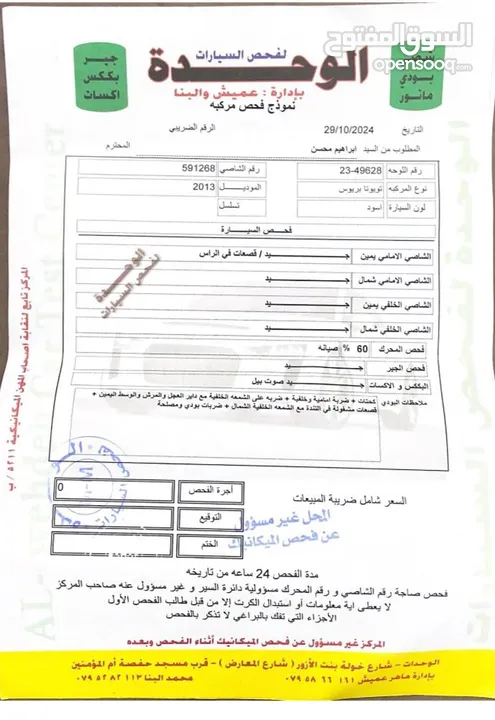 السوق المفتوح
opensooq.com
جير
بككس
اكسات
لفحص السيارات
الوحدة
بإدارة : عميش والبنا
نموذج فحص مركبه
بودي
ماتور
التاريخ 29/10/2024 الرقم الضريبي
المطلوب من السيد ابراهيم محسن المحترم
رقم اللوحه 23-49628 رقم الشاصي 591268
نوع المركبه تويوتا بريوس الموديل 2013
لون السيارة اسود تسلسل
فحص السيارة
الشاصي الامامي يمين جيد / قصعات في الراس
الشاصي الامامي شمال جيد
الشاصي الخلفي يمين جيد
الشاصي الخلفي شمال جيد
فحص المحرك 60 % صيانه
فحص الجير جيد
البككس و الاكسات جيد صوت بيل
ملاحظات البودي كحتات + ضربة امامية وخلفية + ضربه على الشمعه الخلفية مع داير العجل والمرش والوسط اليمين +
قصعات مشغولة في التندة مع الشمعه الخلفية الشمال + ضربات بودي ومصلحة
الوحدة
لفحص السيارات
المركز تابع لنقابة اصحاب المهن الميكانيكية ٥٢١١ / ب
السعر شامل ضريبة المبيعات
أجرة الفحص 0
التوقيع
الختم
المحل غير مسؤول
عن فحص الميكانيك
مدة الفحص 24 ساعه من تاريخه
فحص صاجة رقم الشاصي و رقم المحرك مسؤولية دائرة السير و غير مسؤول عنه صاحب المركز
لا يعطى اية معلومات أو استبدال الكرت إلا من قبل طالب الفحص الأول
الأجزاء التي تفك بالبراغي لا تذكر بالفحص
المركز غير مسؤول عن فحص الميكانيك أثناء الفحص وبعده
الوحدات - شارع خولة بنت الأزور ( شارع المعارض ) - قرب مسجد حفصة أم المؤمنين
بإدارة ماهر عميش ٠٧٩٥٨٦٦١٦١ محمد البنا ٠٧٩٥٢٨٢١١٣